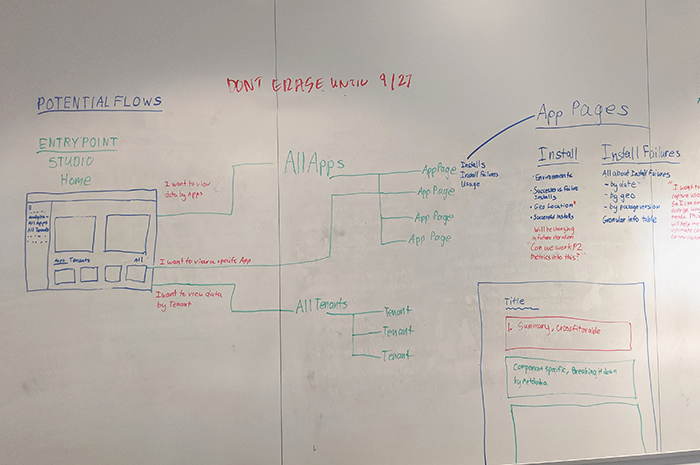 DONT ERASE UNTIL 9/27
POTENTIAL FLOWS
ENTRYPOINT
STUDIO
Home
All Apps
All Tenants
Apps Tenants
All
I want to view
data by Apps
I want to view a specific App
I want to view data
by Tenant
All Apps
App Page
App Page
App Page
App Page
Installs
Install Failures
Usage
All Tenants
Tenant
Tenant
Tenant
App Pages
Install
Environments
Success vs Failure
Installs
Geo Location
Successful Installs
Will be changing
in future iteration
"Can we work P2
Metrics into this?"
Install Failures
All about Install Failures
- by date
- by geo
- by package version
Granular info table
"I want to
will help me
Title
1. Summary, Crossfilterable
Component specific, Breaking it down
by Metadata